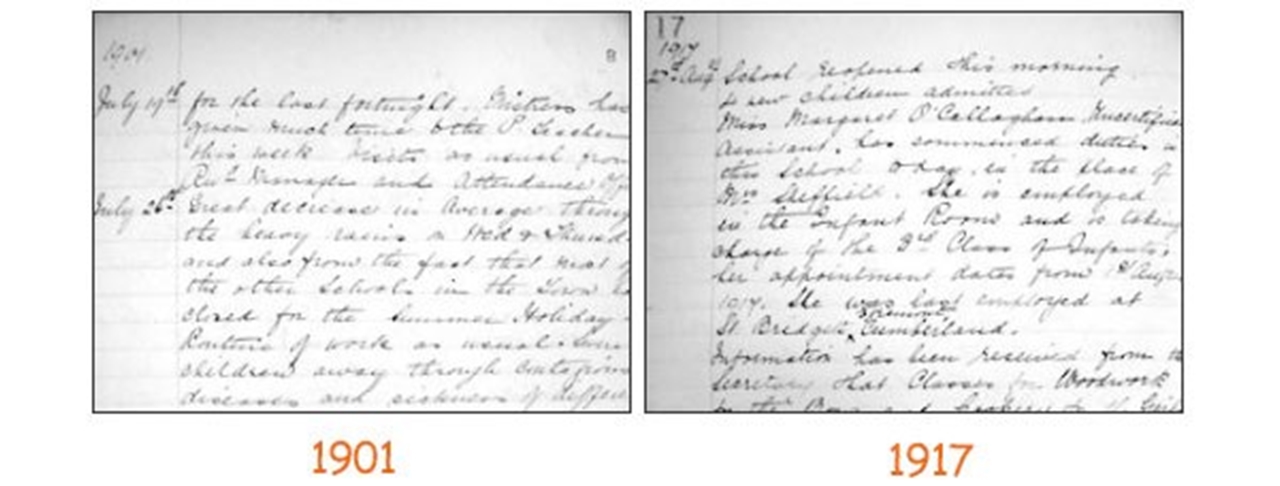 1901
8
July 19th for the last fortnight. Mistress has
given much time to the P. Teacher
this week. Visits as usual from
Revd Manager and Attendance Offi
July 26th Great decrease in Average throug
the heavy rains on Wed & Thursd
and also from the fact that most of
the other Schools in the Town ha
closed for the Summer Holiday
Routine of work as usual. Some
children away through contagious
diseases and sickness of differe
17
1917
27th Aug School reopened this morning
new children admitted
Miss Margaret O'Callaghan Uncertifica
Assistant, has commenced duties in
this School today, in the place of
Mrs Sheffield. She is employed
in the Infant Room and is taking
charge of the 3rd Class of Infants.
Her appointment dates from Aug
1917. She was last employed at
St Bridget's, Egremont Cumberland.
Information has been received from th
Secretary that Classes for Woodwork
for the Boys and Cookery for
1901
1917